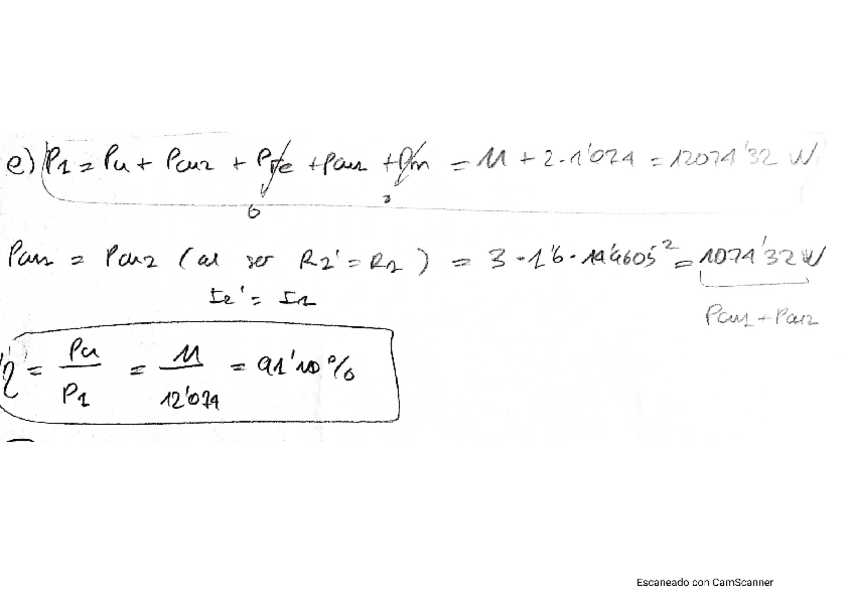 e) P1 = Pu + Pcu2 + Pfe + Pcu1 + Pm = 11 + 2·1'074 = 12074'32 W
0 0
Pcu1 = Pcu2 (al ser R2' = R1) = 3·1'6·14'9605² = 1074'32 W
I2' = I1
Pcu1 + Pcu2
η = Pu / P1 = 11 / 12'074 = 91'10 %
Escaneado con CamScanner